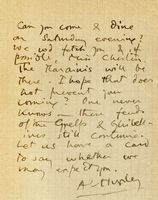 Can you come & dine
on Saturday evening?
We wd fetch you & if
possible, Miss
The                 will be
there. I hope that does
not prevent you
coming? One never
knows — these feuds
of the Guelfs & Ghibell-
ines still continue.
Let us have a card
to say whether we
may expect you.
A L Huxley